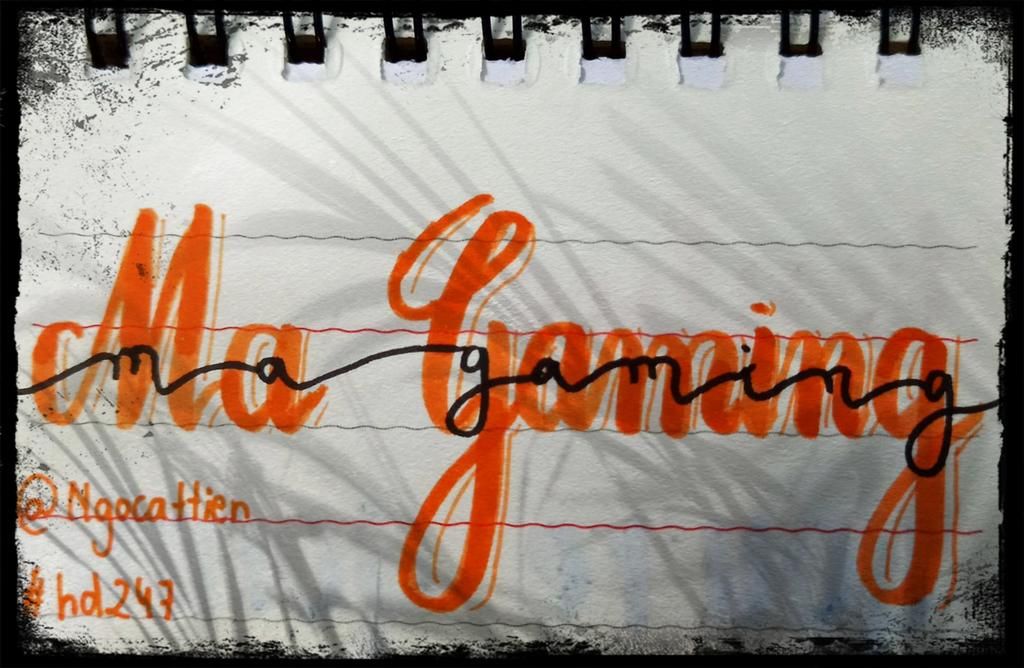 Ma Gaming
ma gaming
@Ngocattien
#hd247